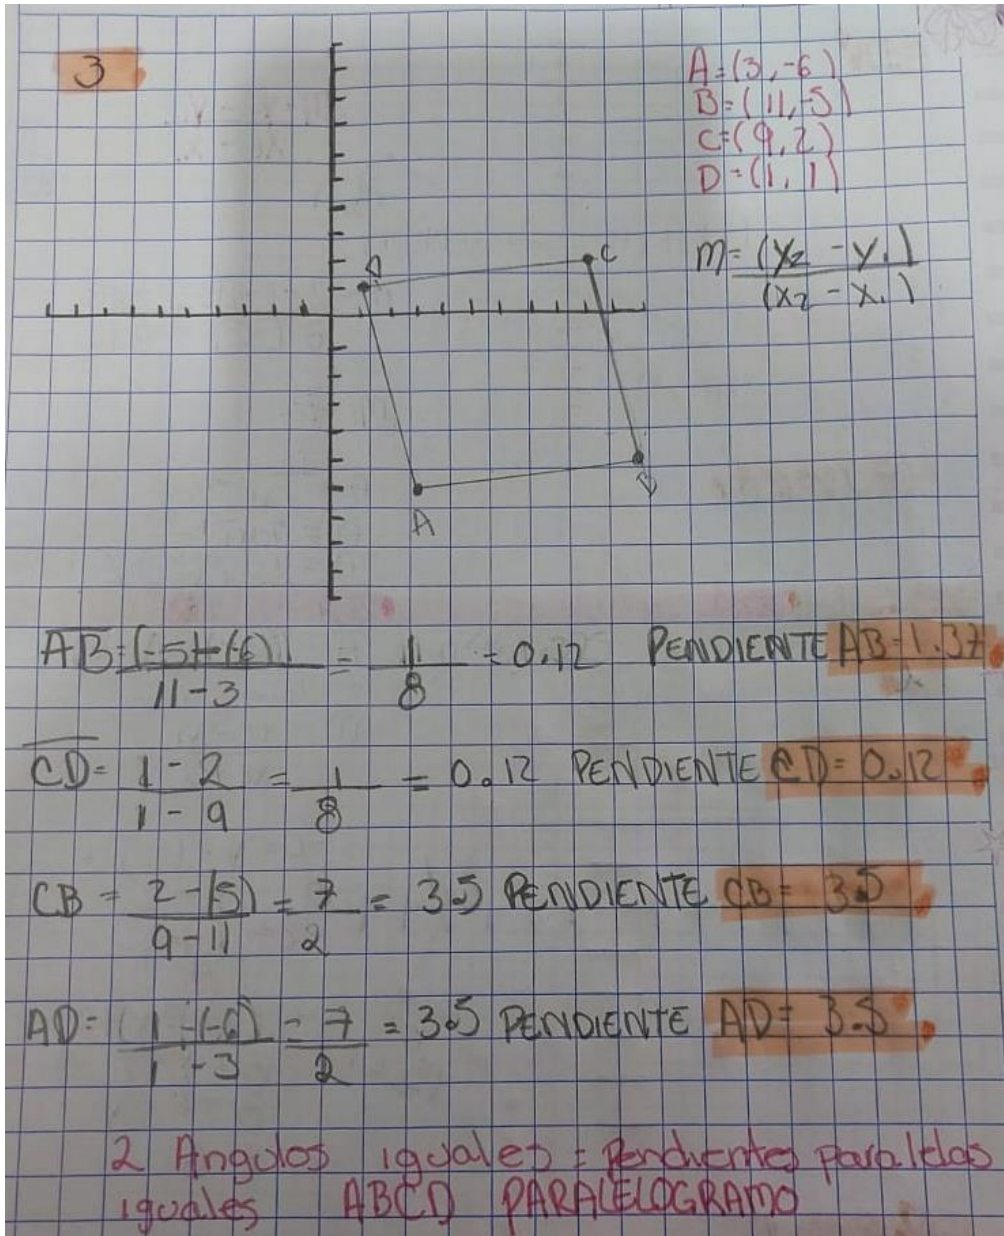 3
A=(3,-6)
B=(11,-5)
C=(9,2)
D=(1,1)
m=(y₂ - y₁)
(x₂ - x₁)
D
C
A
B
AB=(-5)-(-6) = 1 = 0.12 PENDIENTE AB=1.37
11-3 8
CD= 1-2 = 1 = 0.12 PENDIENTE CD= 0.12
1-9 8
CB = 2-(5) = 7 = 3.5 PENDIENTE CB= 3.5
9-11 2
AD= 1-(-6) = 7 = 3.5 PENDIENTE AD= 3.5
1-3 2
2 Angulos iguales = Pendientes paralelas
iguales ABCD PARALELOGRAMO